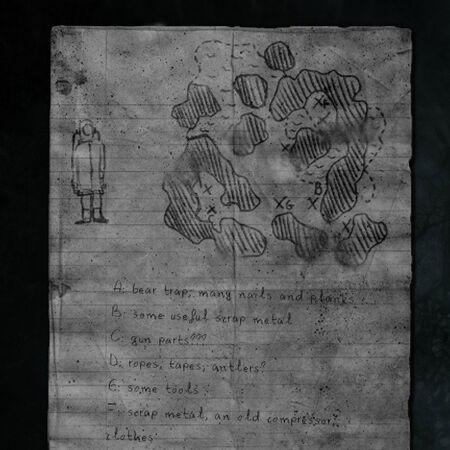 A
B
C
G
A: bear trap, many nails and planks
B: some useful scrap metal
C: gun parts???
D: ropes, tapes, antlers?
E: some tools
F: scrap metal, an old compressor,
clothes